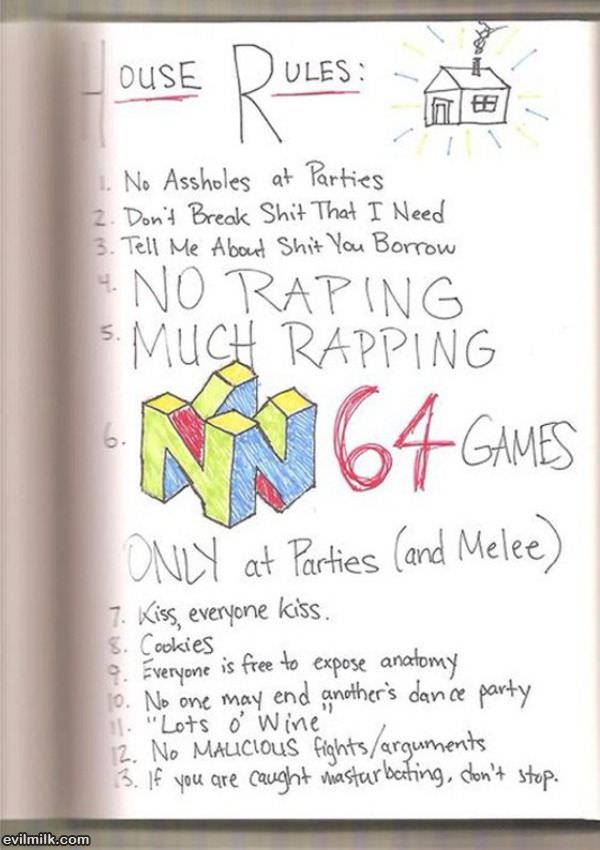 HOUSE RULES:
1. No Assholes at Parties
2. Don't Break Shit That I Need
3. Tell Me About Shit You Borrow
4. NO RAPING
5. MUCH RAPPING
6. N 64 GAMES
ONLY at Parties (and Melee)
7. Kiss, everyone kiss.
8. Cookies
9. Everyone is free to expose anatomy
10. No one may end another's dance party
11. "Lots o' Wine"
12. No MALICIOUS fights/arguments
13. If you are caught masturbating, don't stop.
evilmilk.com